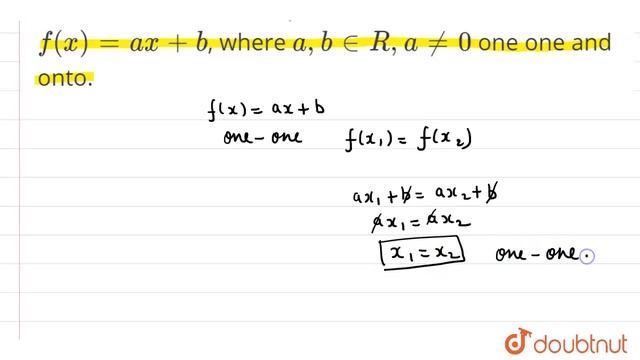 f(x) = ax + b, where a, b ∈ R, a ≠ 0 one one and
onto.
f(x) = ax + b
one - one f(x₁) = f(x₂)
ax₁ + b = ax₂ + b
ax₁ = ax₂
x₁ = x₂ one - one .
doubtnut